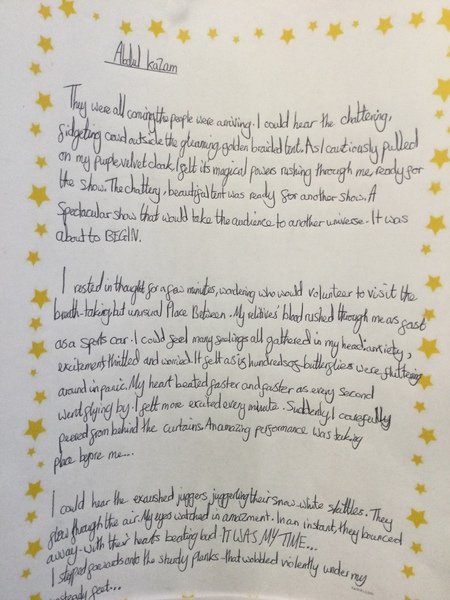 Abdul kazam
They were all coming the people were arriving. I could hear the chattering,
fidgeting crowd outside the gleaming, golden braided tent. As I cautiously pulled
on my purple velvet cloak, I felt its magical powers rushing through me, ready for
the show. The chattery, beautiful tent was ready for another show. A
spectacular show that would take the audience to another universe. It was
about to BEGIN.
I rested in thought for a few minutes, wondering who would volunteer to visit the
breath-taking but unusual Place Between. My relitives' blood rushed through me as fast
as a sports car. I could feel many feelings all gathered in my head: anxiety,
excitement thrilled and worried. It felt as if hundreds of butterflies were fluttering
around in panic. My heart beated faster and faster as every second
went flying by. I felt more excited every minute. Suddenly, I carefully
peered from behind the curtains. An amazing performance was taking
place before me...
I could hear the juggers their snow-white skittles. They
flew through the air. My eyes watched in amazment. In an instant, they bounced
away - with their hearts beating loud IT WAS MY TIME...
I stepped forwards onto the sturdy planks - that wobbled violently under my
feet...